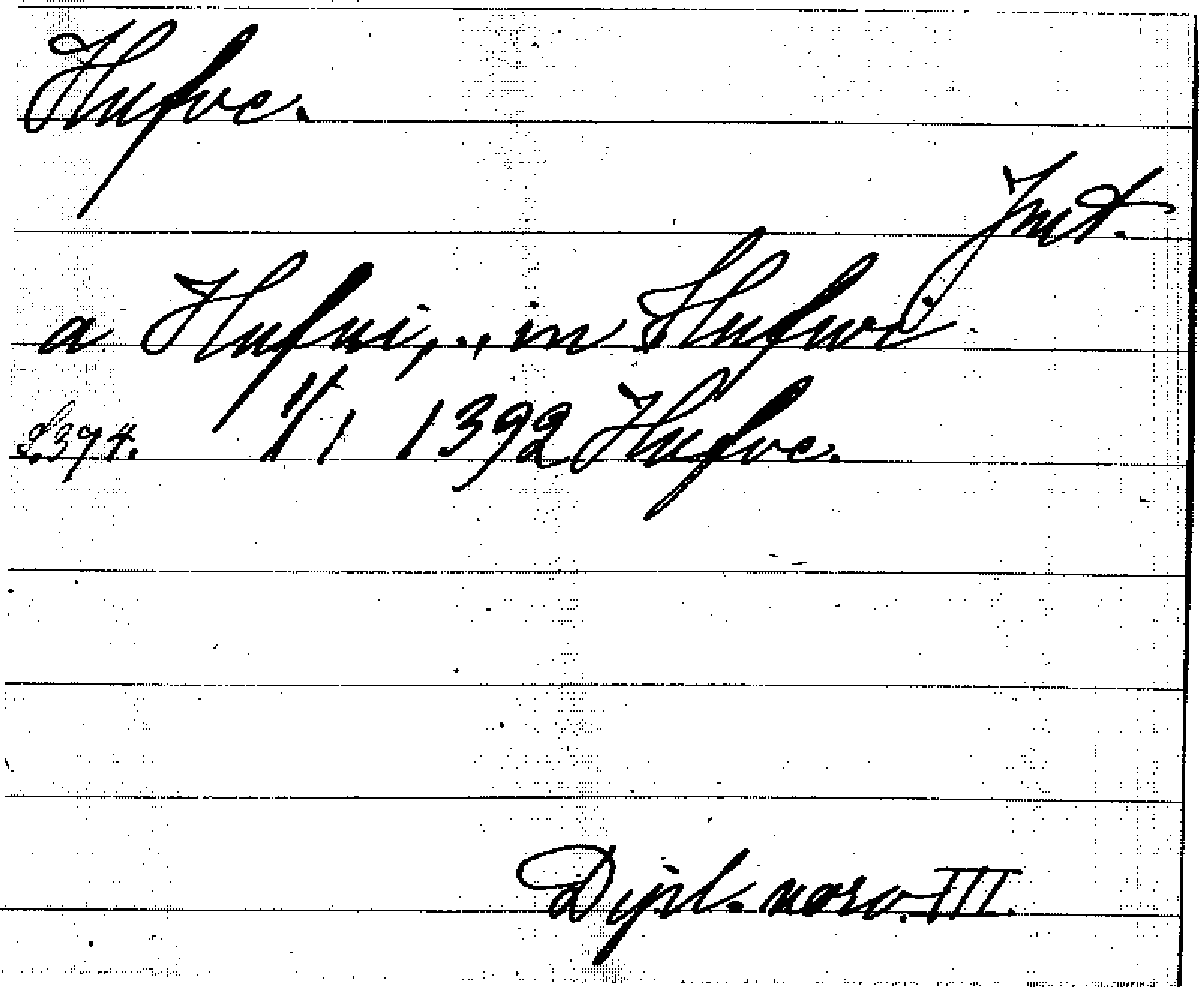 Hufve.
Jmt.
a Hufui, ., in Hufwi
S. 374. 11/1 1392 Hufve.
Dipl. norv. III.